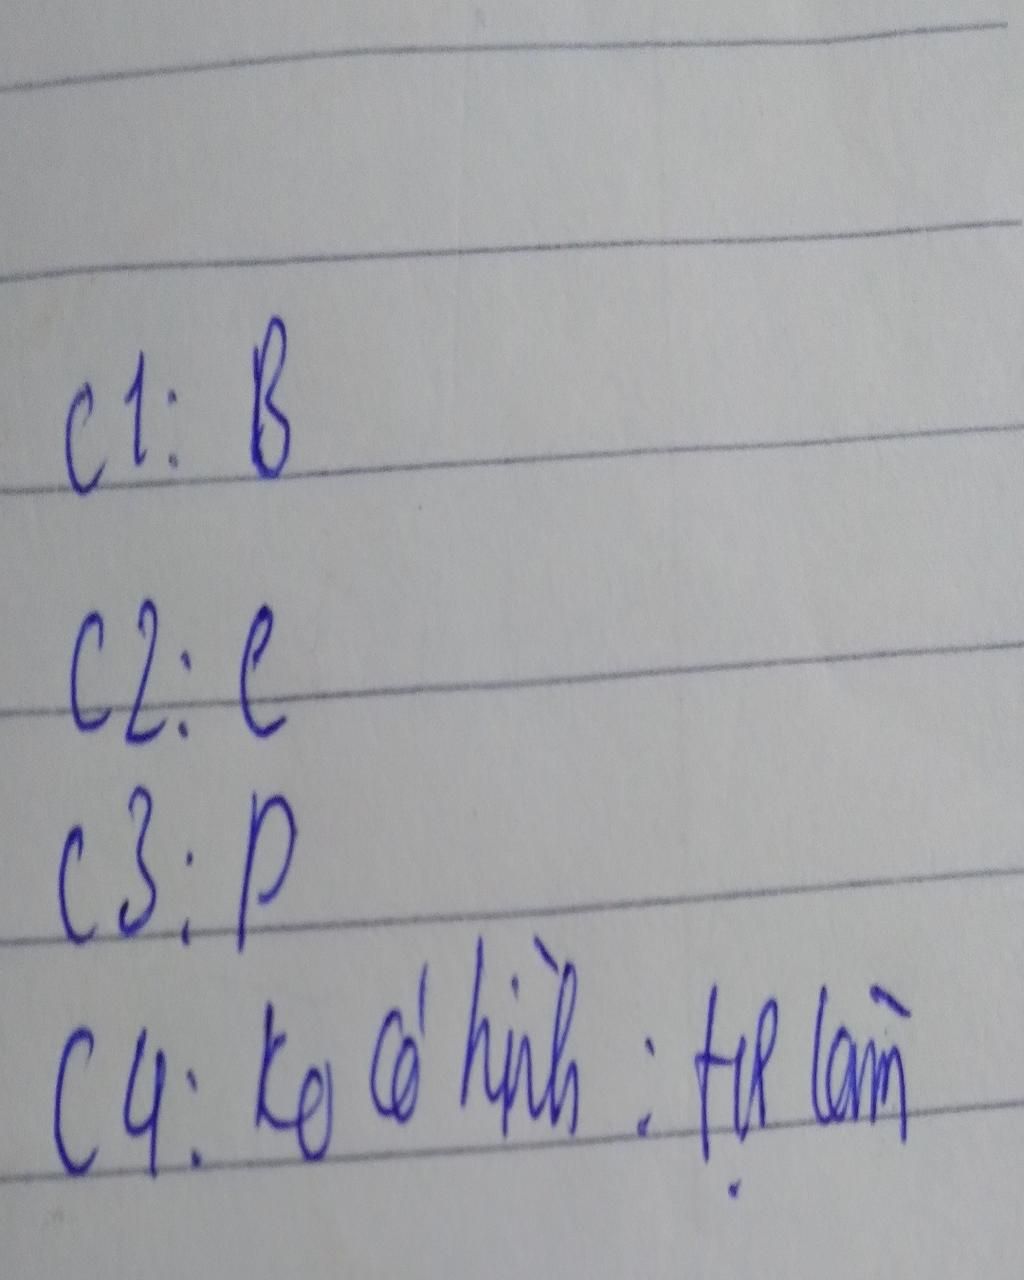 C1: B
C2: C
C3: D
C4: Ko có hình : tự làm